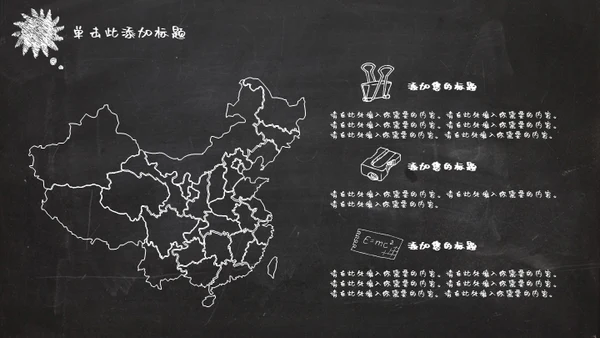 单击此添加标题
添加您的标题
请在此处输入你需要的内容。请在此处输入你需要的内容。
请在此处输入你需要的内容。请在此处输入你需要的内容。
请在此处输入你需要的内容。请在此处输入你需要的内容。
添加您的标题
请在此处输入你需要的内容。请在此处输入你需要的内容。
请在此处输入你需要的内容。
添加您的标题
E=mc²
请在此处输入你需要的内容。请在此处输入你需要的内容。
请在此处输入你需要的内容。请在此处输入你需要的内容。
请在此处输入你需要的内容。请在此处输入你需要的内容。